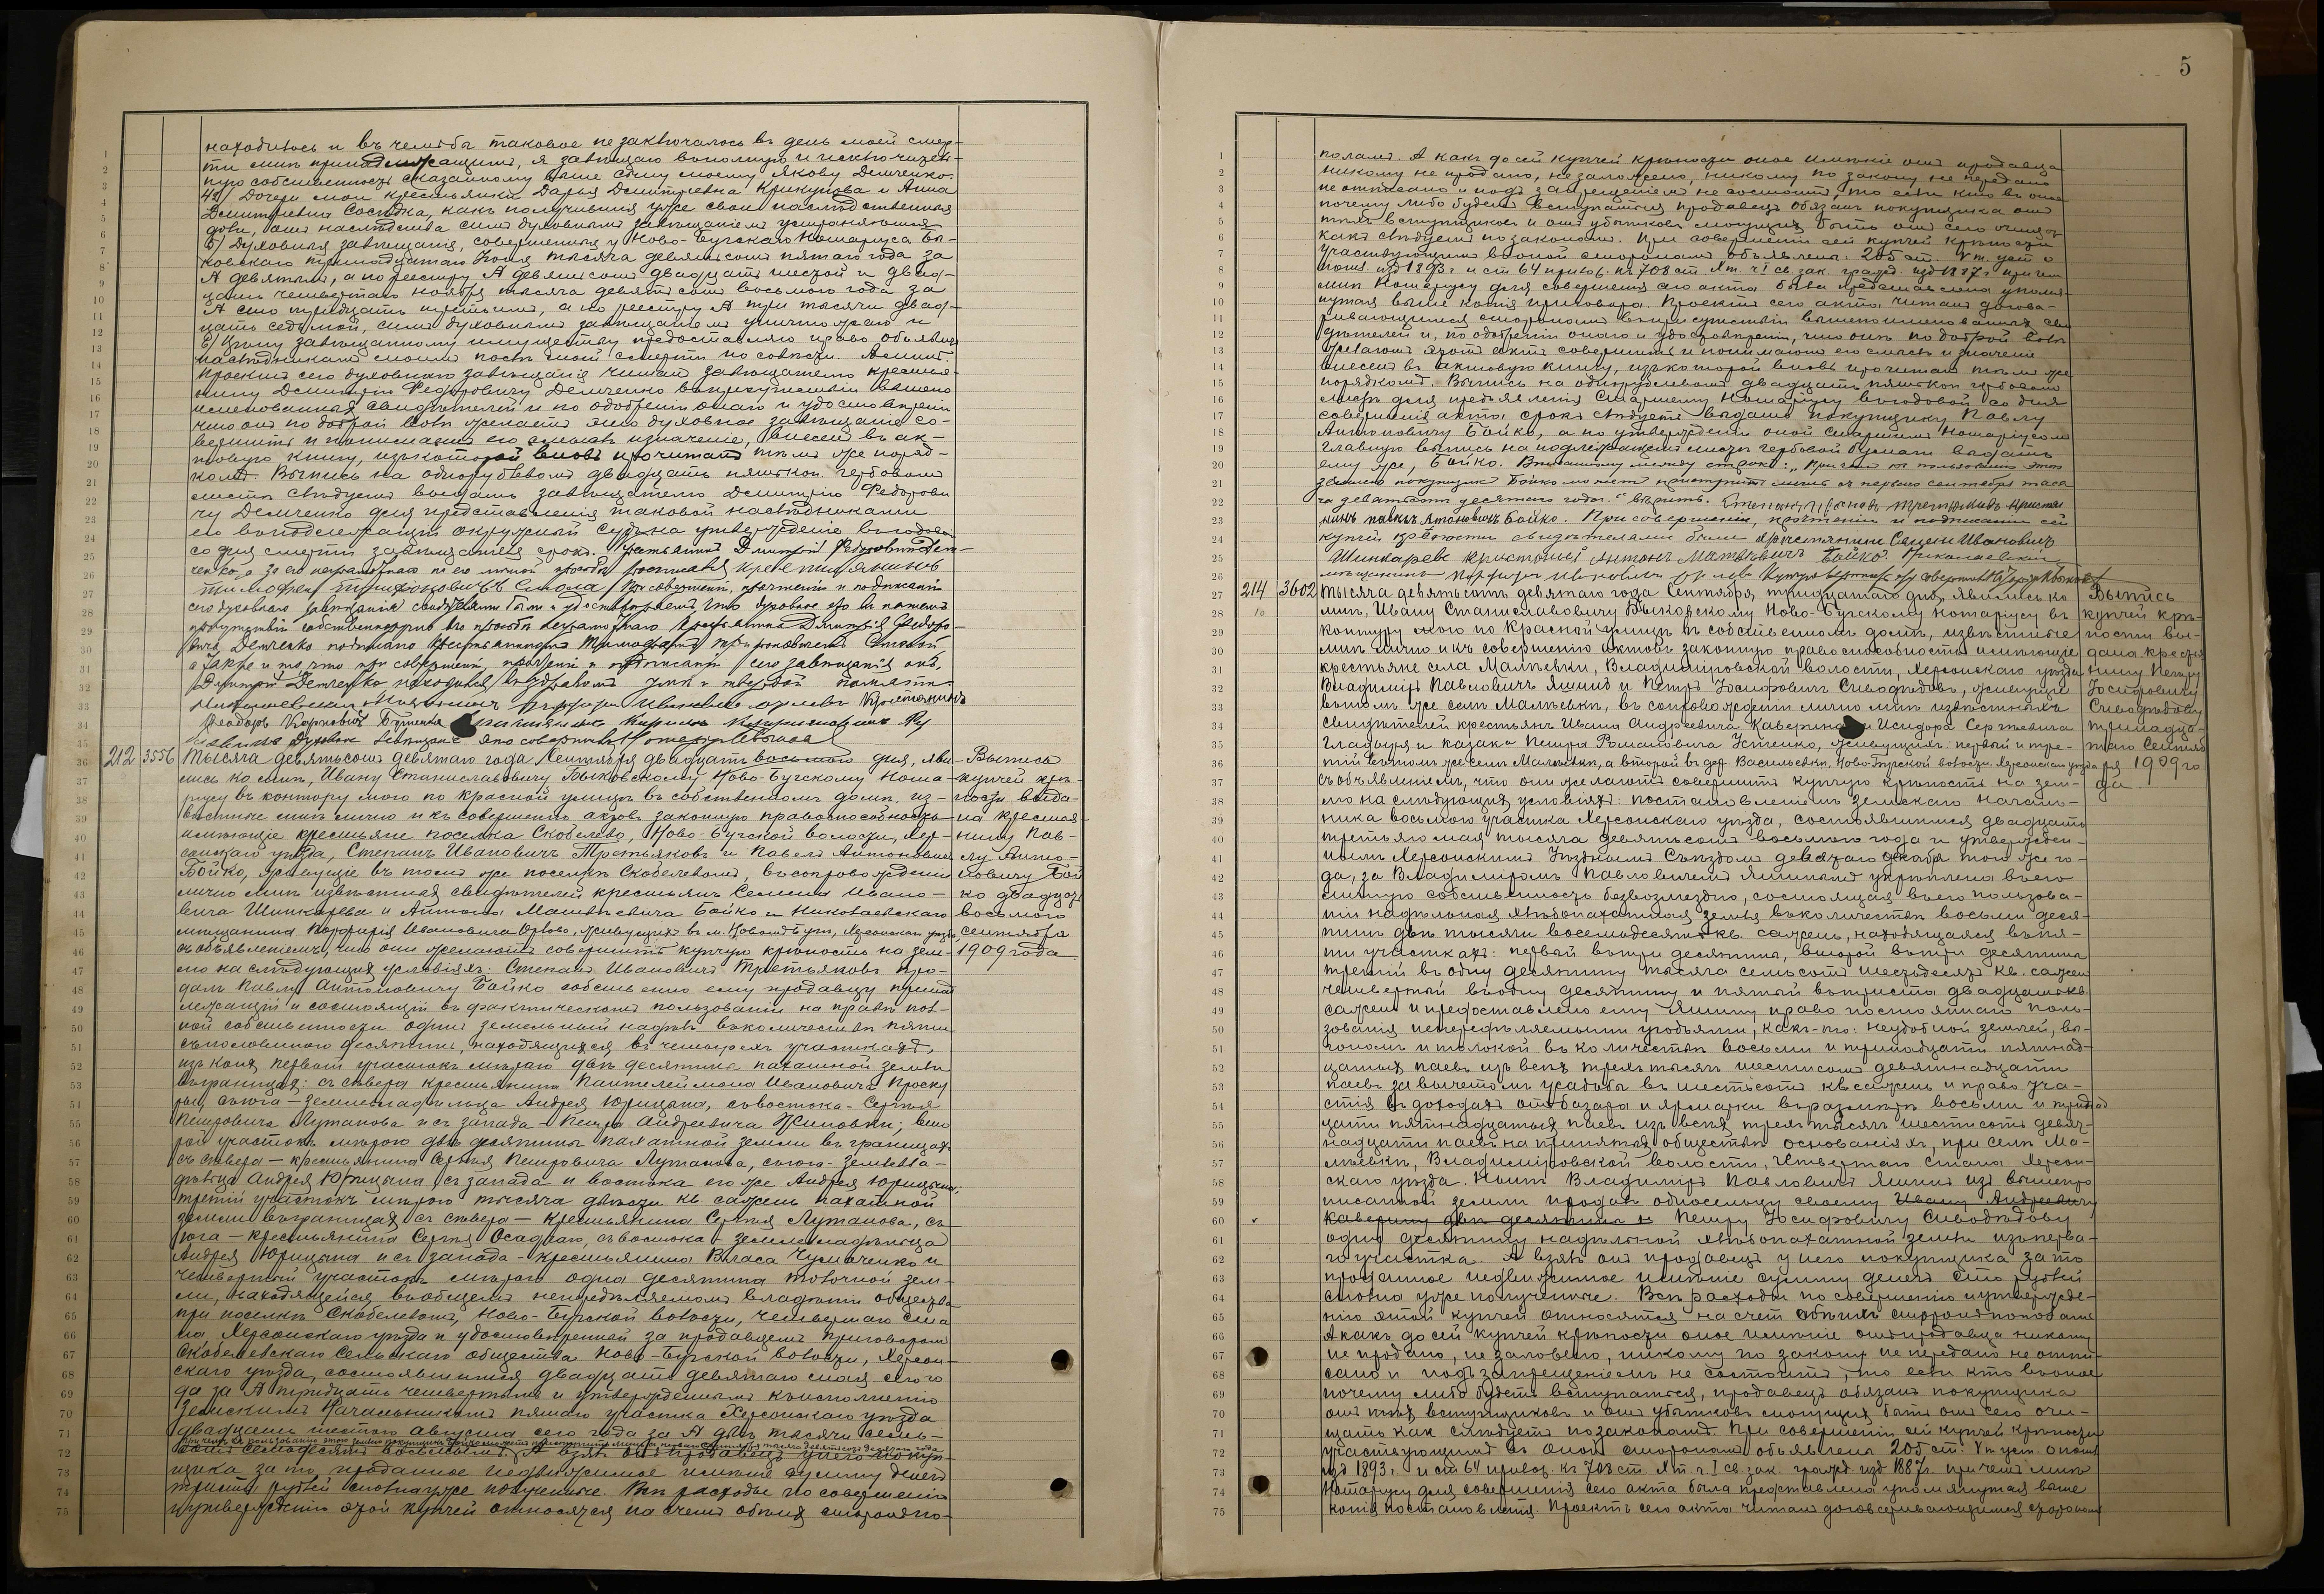 находилось и въ чемъ бы таковое не заключалось въ день моей смер-
ти мнѣ принадлежащимъ, я завѣщаю въ полную и исключитель-
ную собственность сказанному выше сыну моему Якову Демченко.
4) Дочери мои крестьянки Дарья Дмитріевна Крикунова и Анна
Дмитріевна Сосѣдка, какъ получившія уже свои наслѣдственныя
доли, отъ наслѣдства симъ духовнымъ завѣщаніемъ устраняются
5) Духовныя завѣщанія, совершенныя у Ново-Бугскаго Нотаріуса Бы-
ковскаго тринадцатаго Іюня тысяча девятьсотъ пятаго года за
№ девятымъ, а по реестру № девятьсотъ двадцать шестой и двад-
цать четвертаго ноября тысяча девятьсотъ восьмого года за
№ сто тридцать третьимъ, а по реестру № три тысячи двад-
цать седьмой, симъ духовнымъ завѣщаніемъ уничтожаю и
6) Цѣну завѣщанному имуществу предоставляю право объявить
наслѣдникамъ моимъ послѣ моей смерти по совѣсти.
Проектъ сего духовнаго завѣщанія читанъ завѣщателю крестья-
нину Дмитрію Федоровичу Демченко въ присутствіи вышепо
именованныхъ свидѣтелей и по одобреніи онаго и удостовѣреніи
что онъ по доброй волѣ желаетъ это духовное завѣщаніе со-
вершить и понимаетъ его смыслъ и значеніе, внесенъ въ ак-
товую книгу, изъ которой вновь прочитанъ тѣмъ же поряд-
комъ. Выпись на однорублевомъ двадцать пяти коп. гербовомъ
листѣ слѣдуетъ выдать завѣщателю Дмитрію Федорови
чу Демченко для представленія таковой наслѣдниками
его въ подлежащій окружный Судъ на утвержденіе въ годовой
со дня смерти завѣщателя срокъ. Крестьянинъ Дмитрій Федоровичъ Дем-
ченко, а за его неграмотнаго по его личной просьбѣ росписался крестьянинъ
Тимофей Трифоновичъ Смола / При совершеніи, прочтеніи и подписаніи
сего духовнаго завѣщанія свидѣтелями были и удостовѣряемъ, что духовное это въ нашемъ
присутствіи собственноручно по просьбѣ неграмотнаго крестьянина Дмитрія Федоро-
вича Демченко подписано крестьяниномъ Тимофеемъ Трифоновичемъ Смолой
а также и то, что при совершеніи, прочтеніи и подписаніи сего завѣщанія онъ,
Дмитрій Демченко находился въ здравомъ умѣ и твердой памяти.
Николаевскій мѣщанинъ Порфирій Ивановичъ Орловъ Крестьянинъ
Феодоръ Карповичъ
212 3556 Тысяча девятьсотъ девятаго года Сентября двадцать восьмого дня, яви- Выпись
лись ко мнѣ, Ивану Станиславовичу Быковскому Ново-Бугскому Нота- купчей крѣ-
ріусу въ контору мою по Красной улицѣ въ собственномъ домѣ, из- пости выда-
вѣстные мнѣ лично и къ совершенію актовъ законную правоспособность на крестья-
имѣющіе крестьяне поселка Скобелево, Ново-Бугской волости, Хер- нину Пав-
сонскаго уѣзда, Степанъ Ивановичъ Третьяковъ и Павелъ Антоновичъ лу Анто-
Бойко, живущіе въ томъ же поселкѣ Скобелевомъ, въ сопровожденіи новичу Бой
лично мнѣ извѣстныхъ свидѣтелей крестьянъ Семена Ивано- ко двадцать
вича Шинкарева и Антона Матвѣевича Бойко и Николаевскаго восьмого
мѣщанина Порфирія Ивановича Орлова, живущихъ въ м. Новомъ Бугѣ, Херсонскаго уѣзда Сентября
съ объявленіемъ, что они желаютъ совершить купчую крѣпость на зем- 1909 года
лю на слѣдующихъ условіяхъ: Степанъ Ивановичъ Третьяковъ про-
далъ Павлу Антоновичу Бойко собственно ему продавцу принад
лежащій и состоящій въ фактическомъ пользованіи на правѣ пол-
ной собственности одинъ земельный надѣлъ въ количествѣ пяти
съ половиною десятинъ, находящихся въ четырехъ участкахъ,
изъ коихъ первый участокъ мѣрою двѣ десятины пахатной земли
въ границахъ: съ сѣвера крестьянина Пантелеймона Ивановича Проску
ры, съ юга - землевладѣльца Андрея Юрицына, съ востока - Сергѣя
Петровича Лутанова и съ запада - Петра Андреевича Жиповки; вто
рой участокъ мѣрою двѣ десятины пахатной земли въ границахъ
съ сѣвера - крестьянина Сергѣя Петровича Лутанова, съ юга - землевла-
дѣльца Андрея Юрицына, съ запада и востока его же Андрея Юрицына;
третій участокъ мѣрою тысяча двѣсти кв. сажень пахатной
земли въ границахъ съ сѣвера - крестьянина Сергѣя Лутанова, съ
юга - крестьянина Сергѣя Осадчаго, съ востока - землевладѣльца
Андрея Юрицына и съ запада - крестьянина Власа Чумаченко и
четвертый участокъ мѣрою одна десятина толочной зем-
ли, находящейся въ общемъ нераздѣляемомъ владѣніи общества
при поселкѣ Скобелевомъ, Ново-Бугской волости, четвертаго ста
на, Херсонскаго уѣзда и удостовѣренный за продавцемъ приговоромъ
Скобелевскаго Сельскаго общества Ново-Бугской волости, Херсон-
скаго уѣзда, состоявшимся двадцать девятаго мая сего го
да за № тридцать четвертымъ и утвержденнымъ къ исполненію
Земскимъ Начальникомъ пятаго участка Херсонскаго уѣзда
двадцать шестого августа сего года за № двѣ тысячи семь-
сотъ семьдесятъ восьмымъ. А взялъ онъ продавецъ у него покуп-
щика за то проданное недвижимое имѣніе сумму денегъ
триста рублей сполна уже полученные. Всѣ расходы по совершенію
и утвержденію этой купчей относятся на счетъ обѣихъ сторонъ по-
5
поламъ. А какъ до сей купчей крѣпости оное имѣніе отъ продавца
никому не продано, не заложено, никому по закону не передано
не отписано и подъ запрещеніемъ не состоитъ, то если кто въ оное
почему либо будетъ вступаться, продавецъ обязанъ покупщика отъ
тѣхъ вступщиковъ и отъ убытковъ могущихъ быть отъ сего очищать
какъ слѣдуетъ по законамъ. При совершеніи сей купчей крѣпости
участвующимъ въ оной сторонамъ объявлена: 205 ст. V т. уст о
пошл. изд 1893 г и ст 64 прилож. къ 708 ст. X т. ч I св. зак. гражд. изд 1887 г при чемъ
мнѣ Нотаріусу для совершенія сего акта была представлена упомя-
нутая выше копія приговора. Проектъ сего акта читанъ догова-
ривающимся сторонамъ въ присутствіи вышепоименованныхъ сви
дѣтелей и, по одобреніи онаго и удостовѣреніи, что онѣ по доброй волѣ
желаютъ этотъ актъ совершить и понимаютъ его смыслъ и значеніе
внесенъ въ актовую книгу, изъ которой вновь прочитанъ тѣмъ же
порядкомъ. Выпись на однорублевомъ двадцать пяти коп гербовомъ
листѣ для предъявленія Старшему Нотаріусу въ годовой со дня
совершенія акта срокъ слѣдуетъ выдать покупщику Павлу
Антоновичу Бойко, а по утвержденіи оной Старшимъ Нотаріусомъ
главную выпись на надлежащемъ листѣ гербовой бумаги выдать
ему же, Бойко. Вписанному между строкъ: „При чемъ къ пользованію этою
землею покупщикъ Бойко можетъ приступить лишь съ перваго сентября тыся
ча девятьсотъ десятаго года." вѣрить. Степанъ Ивановъ Третьяковъ Крестья
нинъ Павелъ Антоновичъ Бойко. При совершеніи, прочтеніи и подписаніи сей
купчей крѣпости свидѣтелями были крестьянинъ Семенъ Ивановичъ
Шинкаревъ крестьянинъ Антонъ Матвѣевичъ Бойко. Николаевскій
мѣщанинъ Порфирій Ивановичъ Орловъ
214 3602 Тысяча девятьсотъ девятаго года Сентября тридцатаго дня, явились ко Выпись
мнѣ, Ивану Станиславовичу Быковскому Ново-Бугскому Нотаріусу въ купчей крѣ-
контору мою по Красной улицѣ въ собственномъ домѣ, извѣстные пости вы-
мнѣ лично и къ совершенію актовъ законную правоспособность имѣющіе дана крестья
крестьяне села Малѣевки, Владиміровской волости, Херсонскаго уѣзда нину Петру
Владиміръ Павловичъ Яшинъ и Петръ Іосифовичъ Сиводѣдовъ, живущіе Іосифовичу
въ томъ же селѣ Малѣевкѣ, въ сопровожденіи лично мнѣ извѣстныхъ Сиводѣдову
свидѣтелей крестьянъ Ивана Андреевича Каверина и Исидора Сергѣевича тридца-
Гладыря и казака Петра Романовича Устенко, живущихъ: первый и тре- таго Сентяб
тій въ томъ же селѣ Малѣевкѣ, а второй въ дер. Васильевкѣ, Ново-Бугской волости, Херсонскаго уѣзда ря 1909 го
съ объявленіемъ, что они желаютъ совершить купчую крѣпость на зем- да.
лю на слѣдующихъ условіяхъ: постановленіемъ Земскаго Началь-
ника восьмого участка Херсонскаго уѣзда, состоявшимся двадцать
третьяго мая тысяча девятьсотъ восьмого года и утвержден-
нымъ Херсонскимъ Уѣзднымъ Съѣздомъ девятаго декабря того же го-
да, за Владиміромъ Павловичемъ Яшинымъ укрѣплена въ его
личную собственность безвозмездно, состоящая въ его пользова-
ніи надѣльная хлѣбопахатная земля въ количествѣ восьми деся-
тинъ двѣ тысячи восемьдесятъ кв. сажень, находящаяся въ пя-
ти участкахъ: первый въ три десятины, второй въ три десятины
третій въ одну десятину тысяча семьсотъ шестьдесятъ кв. сажень
четвертый въ одну десятину и пятый въ триста двадцать кв.
сажень и предоставлено ему Яшину право постояннаго поль-
зованія непередѣляемыми угодьями, какъ-то: неудобной землей, вы-
гономъ и толокой въ количествѣ восьми и тринадцати пятнад-
цатыхъ паевъ изъ всѣхъ трехъ тысячъ шестисотъ девятнадцати
паевъ за вычетомъ усадьбы въ шестьсотъ кв. сажень и право уча-
стія въ доходахъ отъ базара и ярмарки въ размѣрѣ восьми и тринад
цати пятнадцатыхъ паевъ изъ всѣхъ трехъ тысячъ шестисотъ девят-
надцати паевъ на принятыхъ обществомъ основаніяхъ, при селѣ Ма-
лѣевкѣ, Владиміровской волости, Четвертаго Стана Херсон-
скаго уѣзда. Нынѣ Владиміръ Павловичъ Яшинъ изъ вышепро
писанной земли продалъ односельцу своему Ивану Андреевичу
Каверину двѣ десятины и Петру Іосифовичу Сиводѣдову
одну десятину надѣльной хлѣбопахатной земли изъ перва-
го участка. А взялъ онъ продавецъ у него покупщика за то
проданное недвижимое имѣніе сумму денегъ сто рублей
сполна уже полученные. Всѣ расходы по совершенію и утвержде-
нію этой купчей относятся на счетъ обѣихъ сторонъ пополамъ
А какъ до сей купчей крѣпости оное имѣніе отъ продавца никому
не продано, не заложено, никому по закону не передано не отпи-
сано и подъ запрещеніемъ не состоитъ, то если кто въ оное
почему либо будетъ вступаться, продавецъ обязанъ покупщика
отъ тѣхъ вступщиковъ и отъ убытковъ могущихъ быть отъ сего очи-
щать какъ слѣдуетъ по законамъ. При совершеніи сей купчей крѣпости
участвующимъ въ оной сторонамъ объявлена 205 ст. V т уст. о пошл.
изд 1893 г. и ст 64 прилож. къ 708 ст. X т. ч. I св. зак. гражд. изд 1887 г. при чемъ мнѣ
Нотаріусу для совершенія сего акта была представлена упомянутая выше
копія постановленія. Проектъ сего акта читанъ договаривающимся сторонамъ